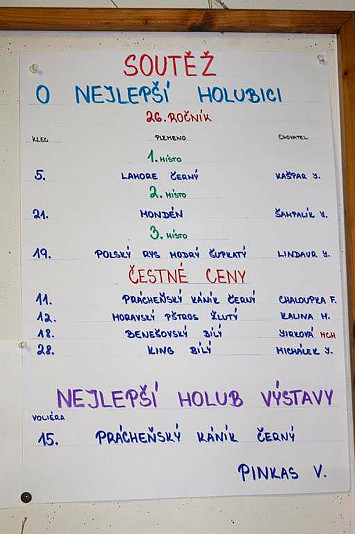 SOUTĚŽ
O NEJLEPŠÍ HOLUBICI
26. ROČNÍK
KLEC PLEMENO CHOVATEL
1. MÍSTO
5. LAHORE ČERNÝ KAŠPAR J.
2. MÍSTO
21. MONDÉN ŠAMPALÍK V.
3. MÍSTO
19. POLSKÝ RYS MODRÝ ŠUPKATÝ LINDAUR J.
ČESTNÉ CENY
11. PRÁCHEŇSKÝ KÁNÍK ČERNÝ CHALOUPKA F.
12. MORAVSKÝ PŠTROS ŽLUTÝ KALINA M.
18. BENEŠOVSKÝ BÍLÝ JIRKOVÁ MCH
28. KING BÍLÝ MICHÁLEK J.
NEJLEPŠÍ HOLUB VÝSTAVY
VOLIÉRA
15. PRÁCHEŇSKÝ KÁNÍK ČERNÝ
PINKAS V.